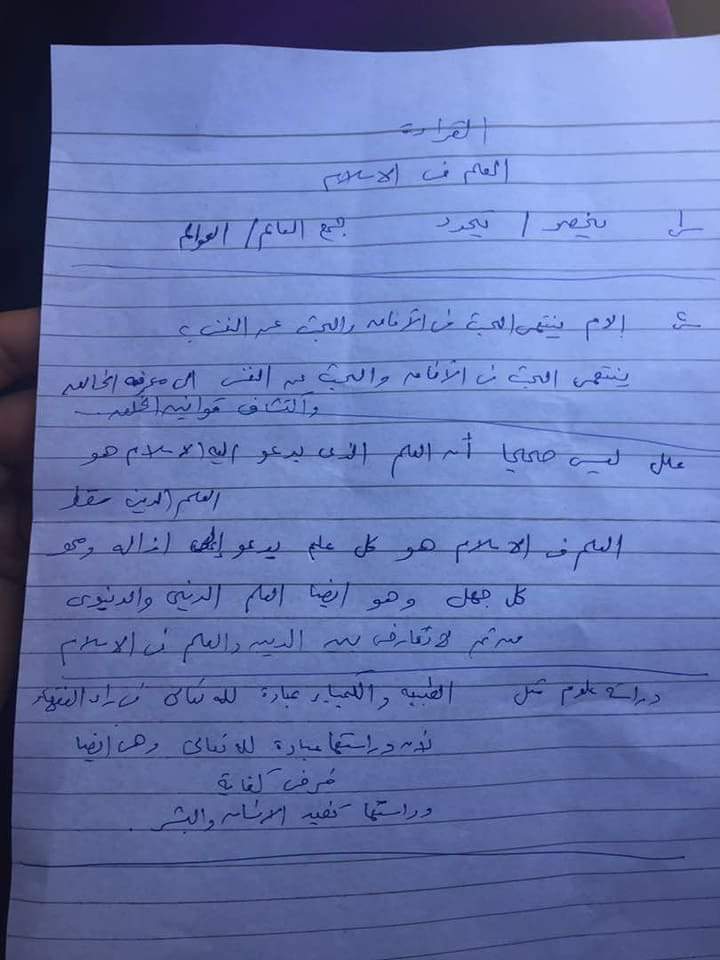 القراءة
العلم فى الاسلام
س١ ينحصر / يتحدد جمع العالم / العوالم
س٢ إلام ينتهى البحث فى الآفاق والبحث عن النفس ؟
ينتهى البحث فى الآفاق والبحث عن النفس الى معرفة الخالق
واكتشاف قوانين الخلق
علل ليس صحيحا أن العلم الذى يدعو اليه الاسلام هو
العلم الدين فقط
العلم فى الاسلام هو كل علم يدعو إلى ازاله ومحو
كل جهل وهو ايضا العلم الدينى والدنيوى
من ثم لا تعارض بين الدين والعلم فى الاسلام
دراسة علوم مثل الطبيه والكيمياء عبادة لله تعالى فى راى الفقهاء
لأن دراستها عبادة لله تعالى وهى ايضا
فرض كفاية
ودراستها تفيد الانسان والبشر .